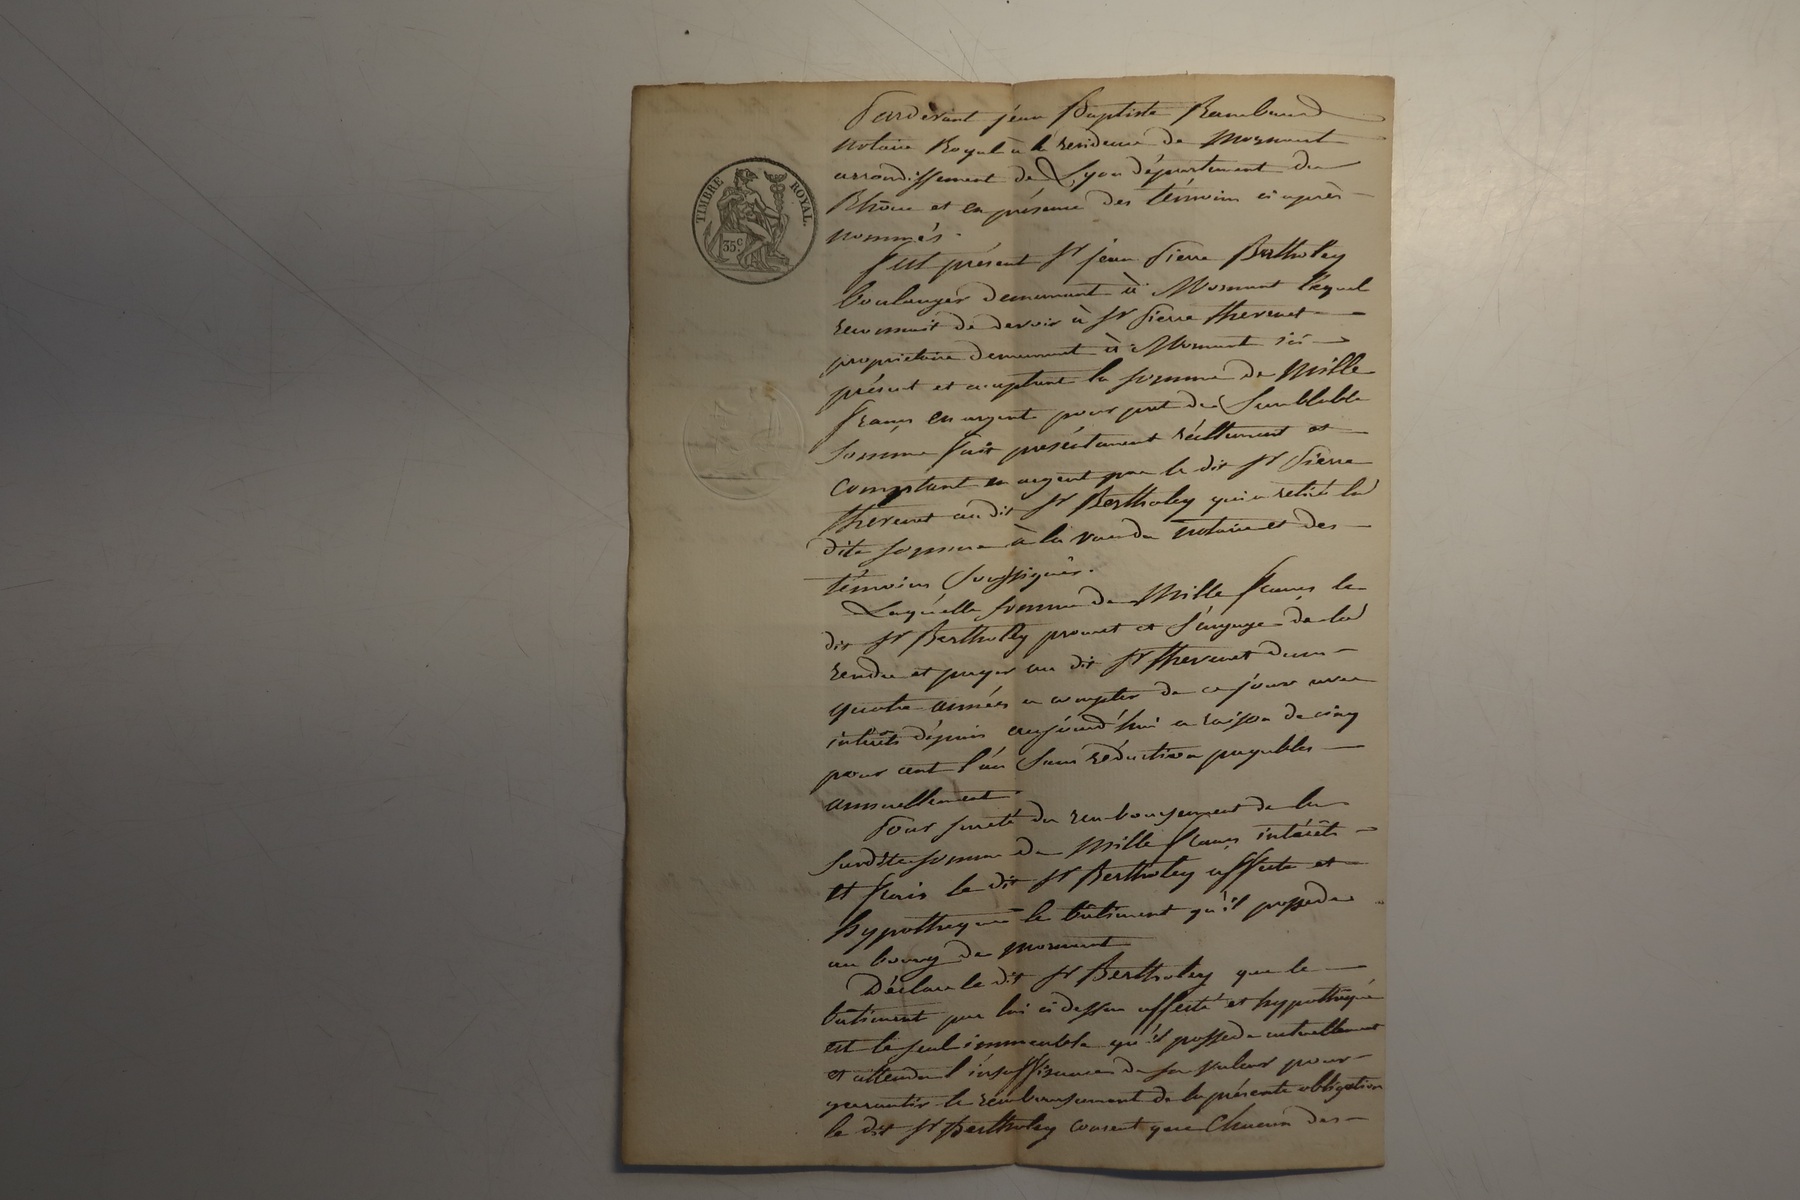 Pardevant jean Baptiste Rambaud
notaire Royal à la residence de Mornant
arrondissement de Lyon département du
Rhône et en présence des témoins ci après
nommés.
TIMBRE ROYAL
35 c.
fut présent Sr jean Pierre Bertholey
boulanger demeurant à Mornant léquel
reconnait de devoir à Sr Pierre thevenet
proprietaire demeurant à Mornant ici
présent et acceptant la somme de Mille
francs en argent pour pret de Semblable
Somme fait preséntement réellement et
comptant en argent par le dit Sr Pierre
thevenet au dit Sr Bertholey qui a retiré la
dite somme à la vue du notaire et des
témoins Soussignés.
Laquélle somme de Mille francs le
dit Sr Bertholey promet et s'éngage de la
rendre et payer au dit Sr thevenet dans
quatre années a compter de ce jour avec
intérêts dépuis aujourd'hui a raison de cinq
pour cent l'an Sans réduction payables
annuellement.
Pour sureté du remboursement de la
Susdite somme de Mille francs intérêts
et frais le dit Sr Bertholey affecte et
hypotheque le bâtiment qu'il possede
au bourg de Mornant
Déclare le dit Sr Bertholey que le
bâtiment par lui ci dessus affecté et hypothéqué
est le seul immeuble qu'il possede actuellement
et attendu l'insuffisance de sa valeur pour
garantir le remboursement de la présente obligation
le dit Sr Bertholey consent que Chacun des